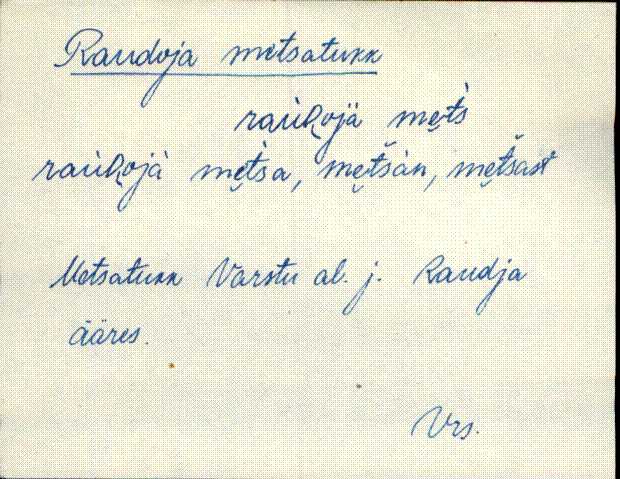 Raudoja metsatukk
rau̬Dojä me̮t̀s
rau̬Dojà me̮t̀sa, me̮tšan, me̮tšast
Metsatukk Varstu al. j. Raudja
ääres.
Vrs.